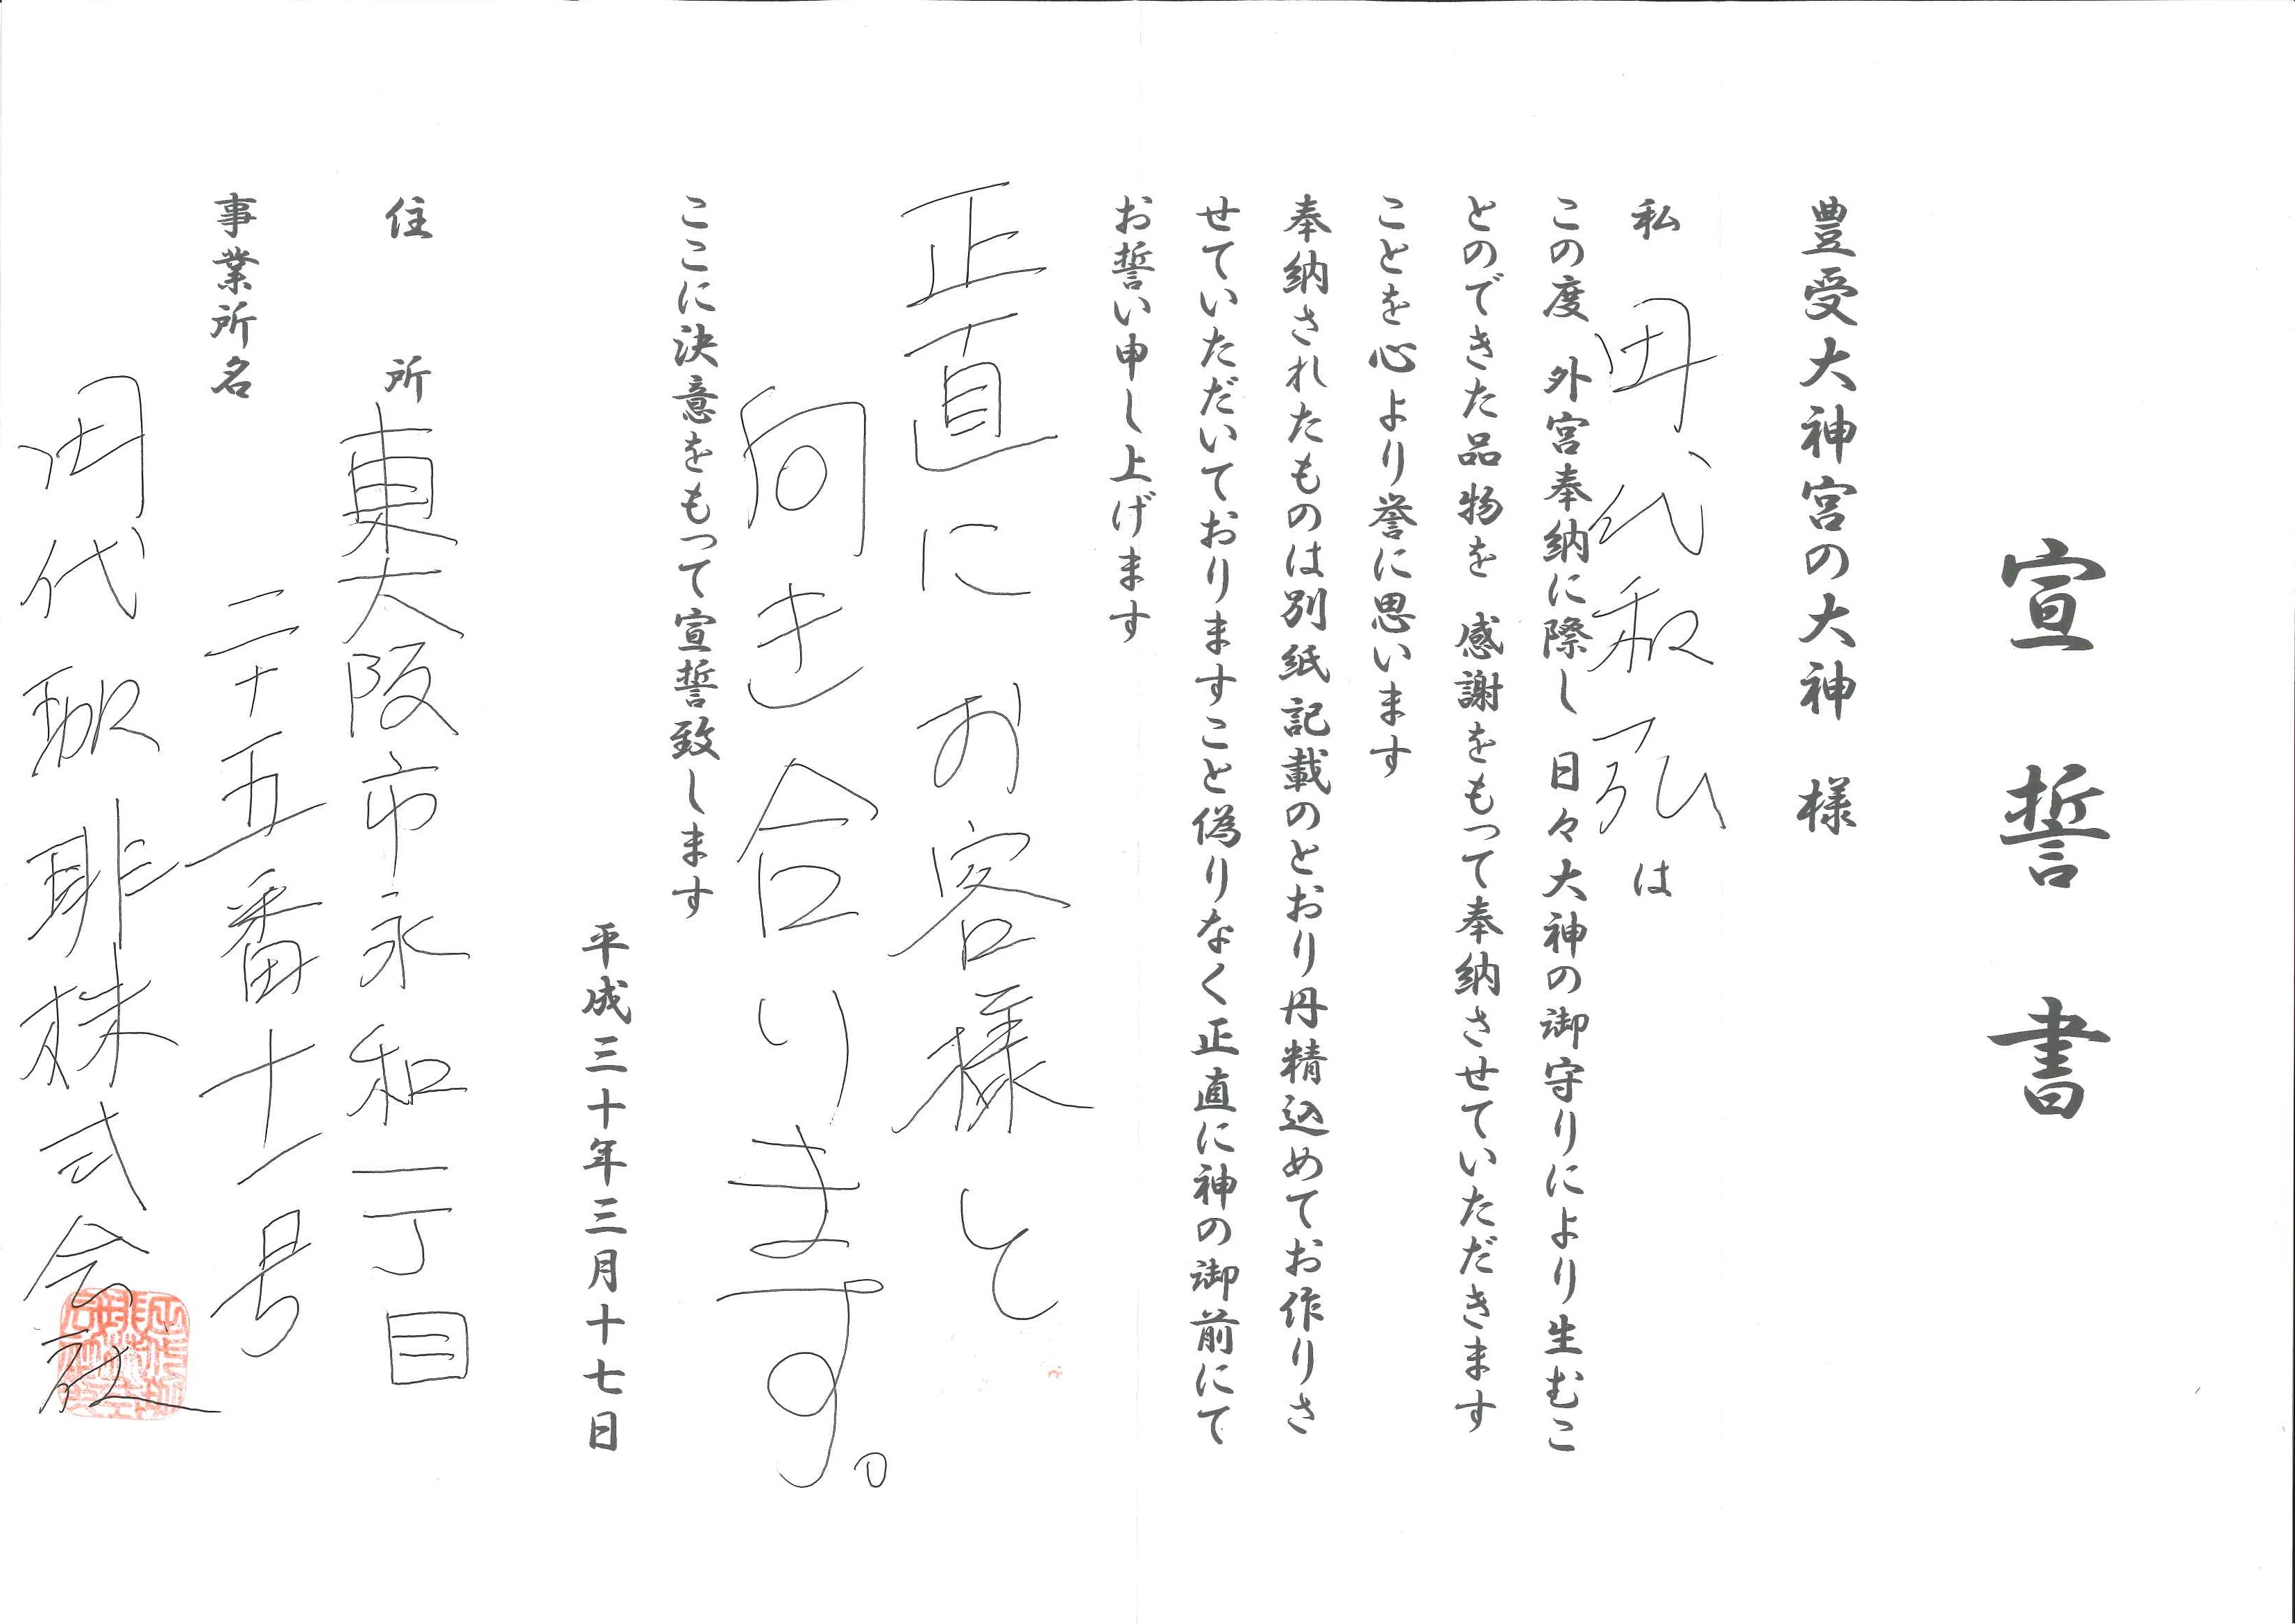 宣誓書
豊受大神宮の大神 様
私 田代和弘 は
この度 外宮奉納に際し 日々大神の御守りにより生むこ
とのできた品物を 感謝をもって奉納させていただきます
ことを心より誉に思います
奉納されたものは別紙記載のとおり丹精込めてお作りさ
せていただいておりますこと偽りなく正直に神の御前にて
お誓い申し上げます
正直にお客様と
向き合います。
ここに決意をもって宣誓致します
平成三十年三月十七日
住 所 東大阪市永和一丁目
二十五番十一号
事業所名
田代珈琲株式会社